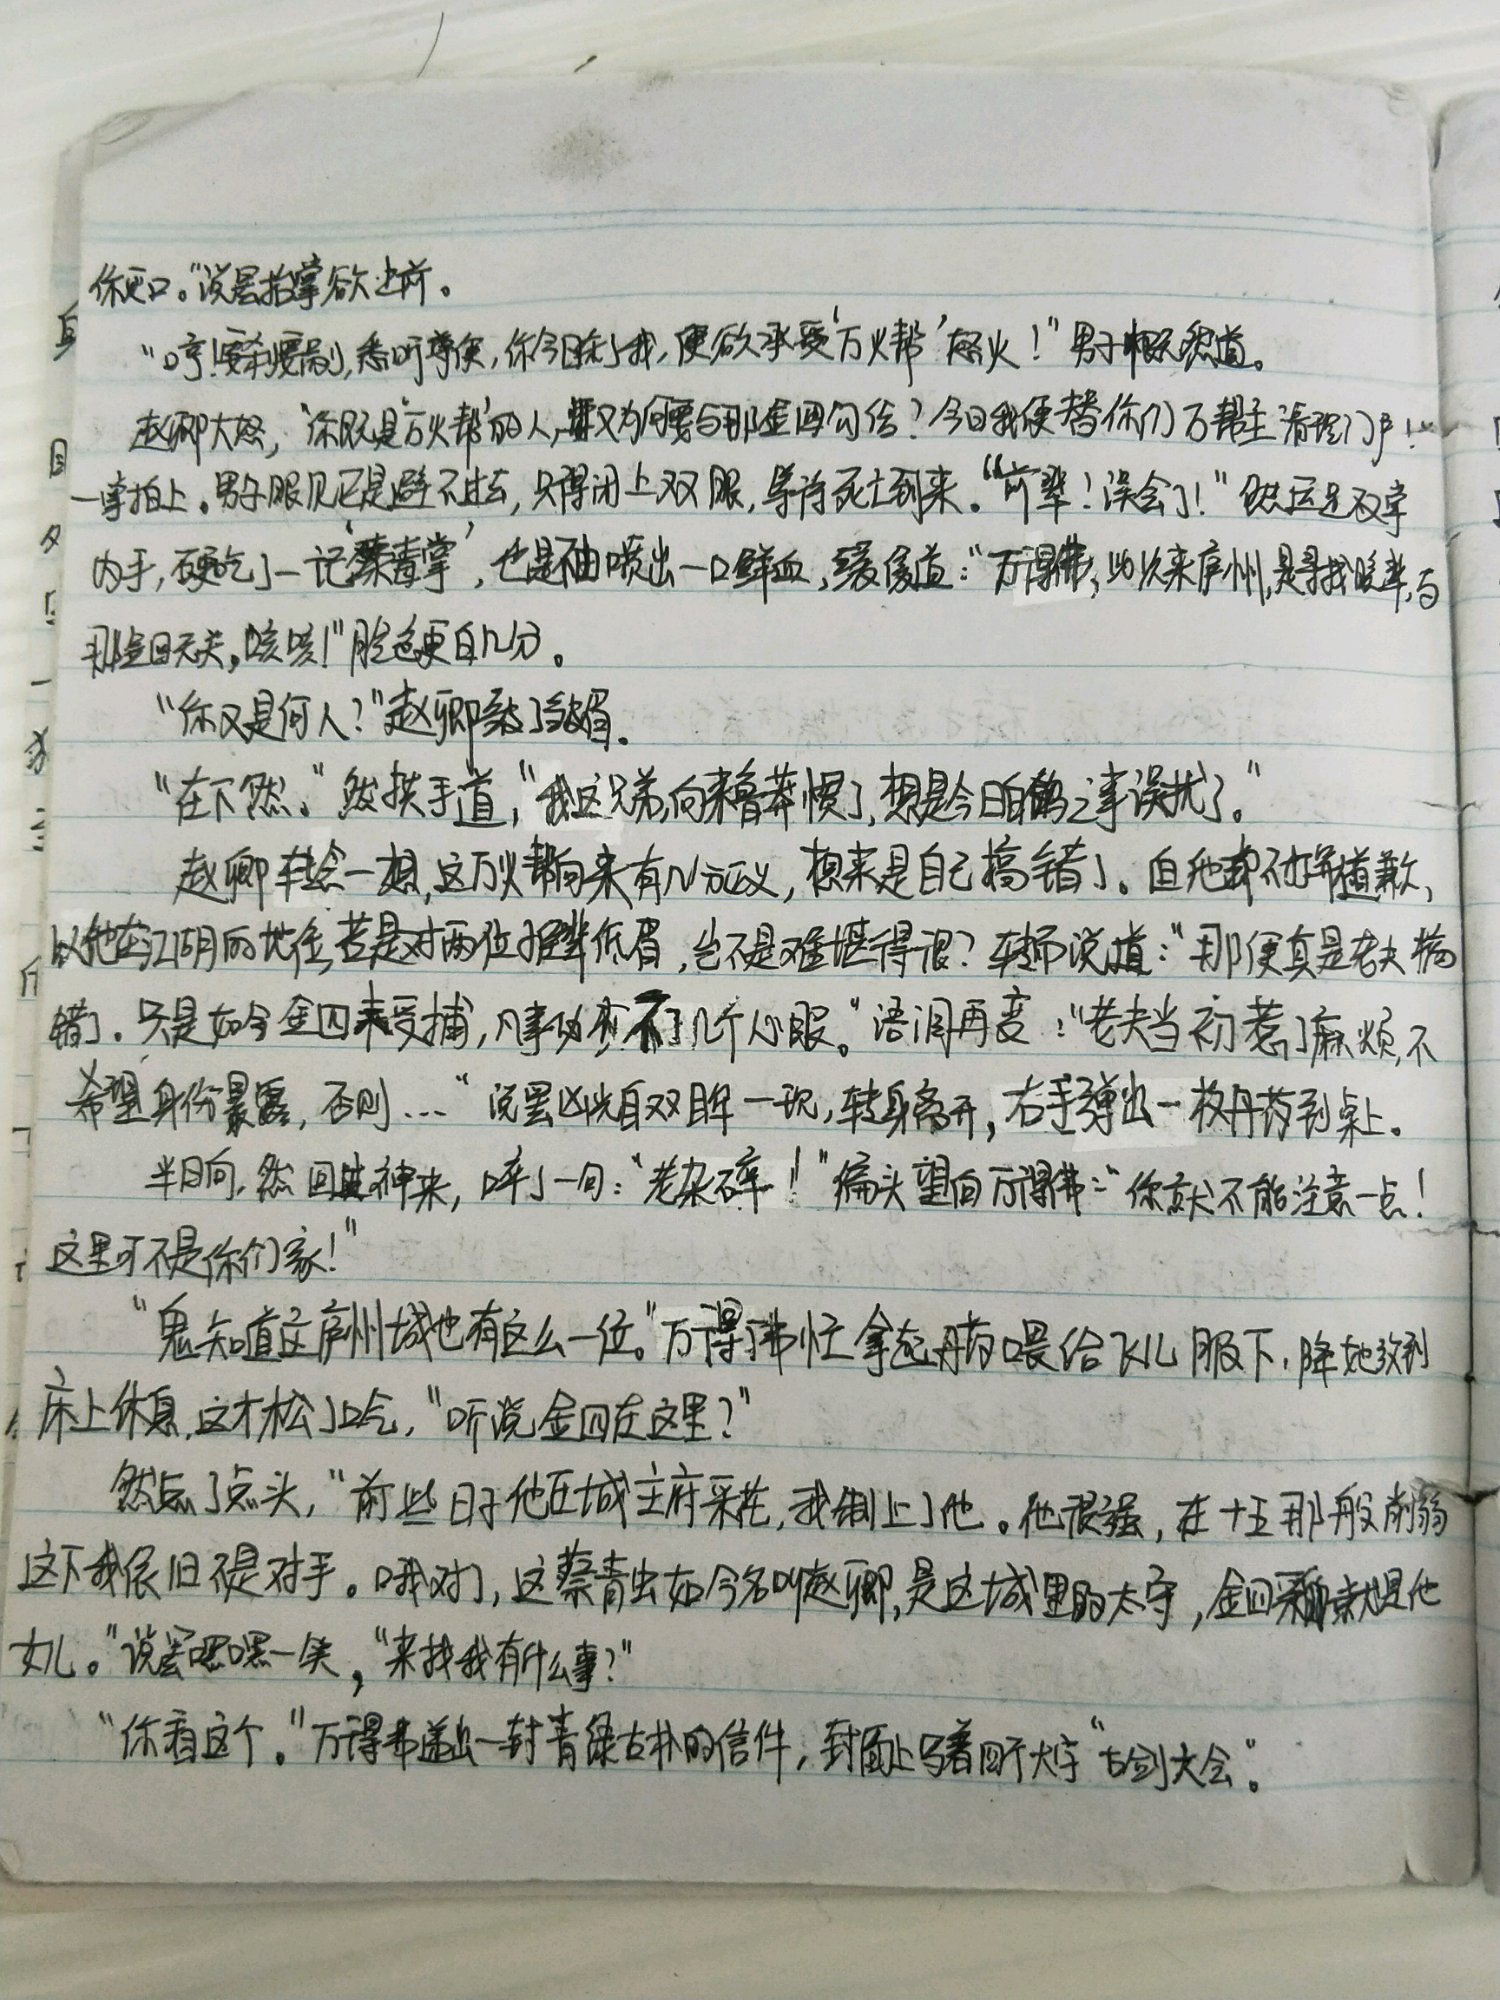 你更口。"说罢抬掌欲上前。
"哼!要杀要剐,悉听尊便,你今日杀了我,便欲承受'万火帮'怒火!"男子慨然道。
赵卿大怒,"你既是'万火帮'的人,又为何要与那金四勾结?今日我便替你们万帮主清理门户!"
一掌拍上。男子眼见已是避不过去,只得闭上双眼,等待死亡到来。"前辈!误会了!"然运足双掌
内手,硬吃了一记'蔡青掌',也是不由喷出一口鲜血,缓缓道:"万得弗,此次来庐州,是寻找晚辈,与
那金四无关。咳咳!"脸色更白几分。
"你又是何人?"赵卿皱了皱眉。
"在下然。"然拱手道,"我这兄弟,向来鲁莽惯了,想是今日白鹤之事误扰了。"
赵卿转念一想,这万火帮向来有几分正义,想来是自己搞错了。但他却不好开口道歉,
以他在江湖的地位,若是对两位晚辈低眉,岂不是难堪得很?转而说道:"那便真是老夫搞
错了。只是如今金四未受捕,凡事仍要多几个心眼。"语调再变:"老夫当初惹了麻烦,不
希望身份暴露,否则..."说罢凶光自双眸一现,转身离开,右手弹出一枚丹药到桌上。
半晌,然回过神来,啐了一句:"老杂碎!"偏头望向万得弗:"你就不能注意一点!
这里可不是你们家!"
"鬼知道这庐州城也有这么一位。"万得弗忙拿起丹药喂给飞儿服下,降她放到
床上休息,这才松了口气,"听说金四在这里?"
然点了点头,"前些日子他在城主府采花,我制止了他。他很强,在十五那般削弱
这下我依旧不是对手。哦对了,这蔡青出如今名叫赵卿,是这城里的太守,金四采的就是他
女儿。"说罢嘿嘿一笑,"来找我有什么事?"
"你看这个。"万得弗递出一封青绿古朴的信件,封面上写着四个大字"古剑大会"。